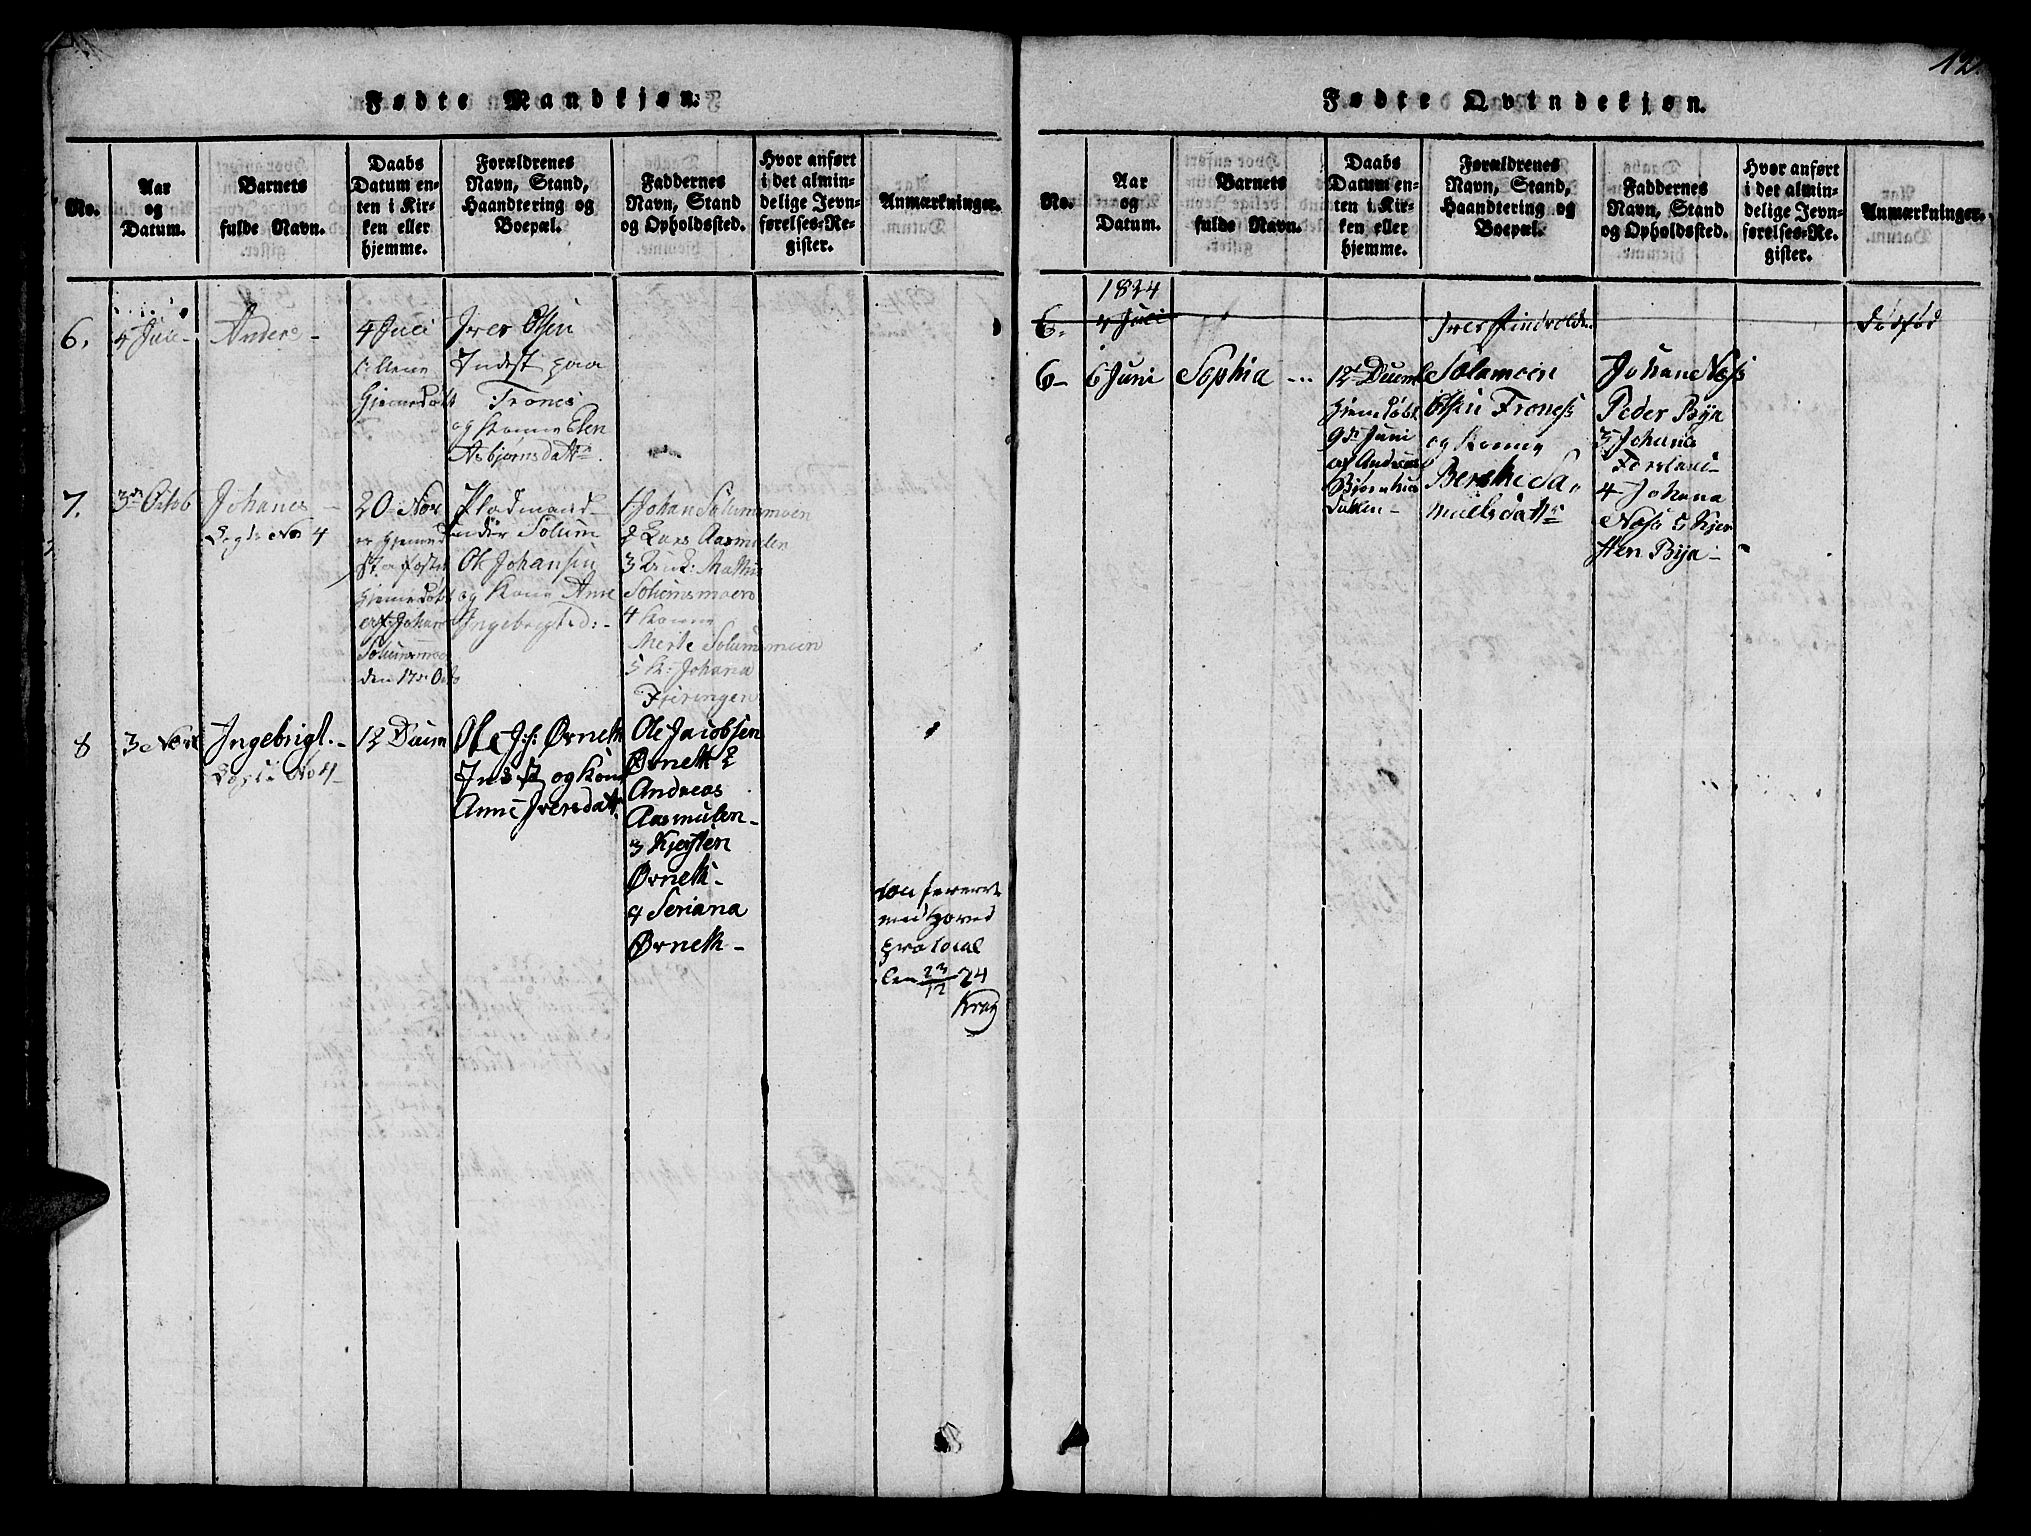 Fødte Mandkjøn.
No.
Aar
og
Datum.
Barnets
fulde Navn.
Daabs
Datum en-
ten i Kir-
ken eller
hjemme.
Forældrenes
Navn, Stand,
Haandtering og
Boepæl.
Faddernes
Navn, Stand
og Opholdssted.
Hvor anført
i det almin-
delige Jevn-
førelses-Re-
gister.
Anmærkninger.
6.
4 Juli -
Anders -
4 Juli
Iver Olsen
Indest paa
Trones
og Kone Elen
Asbjørnsdattr.
7.
3de Octob
Johanes
20 Nov
Pladsmand
under Solum
Ole Johansen
og Kone Ane
Ingebrigtsd: -
af Johan
Solumsmoe
den 17de Octo
1 Johan Solumsmoen
2 Lars Aasmulen
3 Enk: Mathis
Solumsmoen
4 Kone
Merte Solumsmoen
5 K: Johana
Fjeringen
8
3 Nov
Ingebrigt. -
12 Decem
Ole J: Ørneth
Indst og Kone
Anne Iversdattr
Ole Jacobsen
Ørneth 2
Andreas
Aasmulen -
3 Kjersten
Ørneth -
4 Seriana
Ørneth -
confereret
med Hoved
protocol
den 23/12 24
Krag
12.
Fødte Qvindekjøn.
No.
Aar
og
Datum.
Barnets
fulde Navn.
Daabs
Datum en-
ten i Kir-
ken eller
hjemme.
Forældrenes
Navn, Stand,
Haandtering og
Boepæl.
Faddernes
Navn, Stand
og Opholdssted.
Hvor anført
i det almin-
delige Jevn-
førelses-Re-
gister.
Anmærkninger.
1824
6.
4 Juli
Dødfød
6 -
6 Juni
Sophia
12 Decemb
Hjemdøbt
9de Juni
af Andreas
Solamoen
Olsen Troness
og Kone
Berethe Sa-
muelsdattr
Johan Næss
Peder Bya
3 Johana
4 Johana
Næss 5 Kjer
sten Bya -